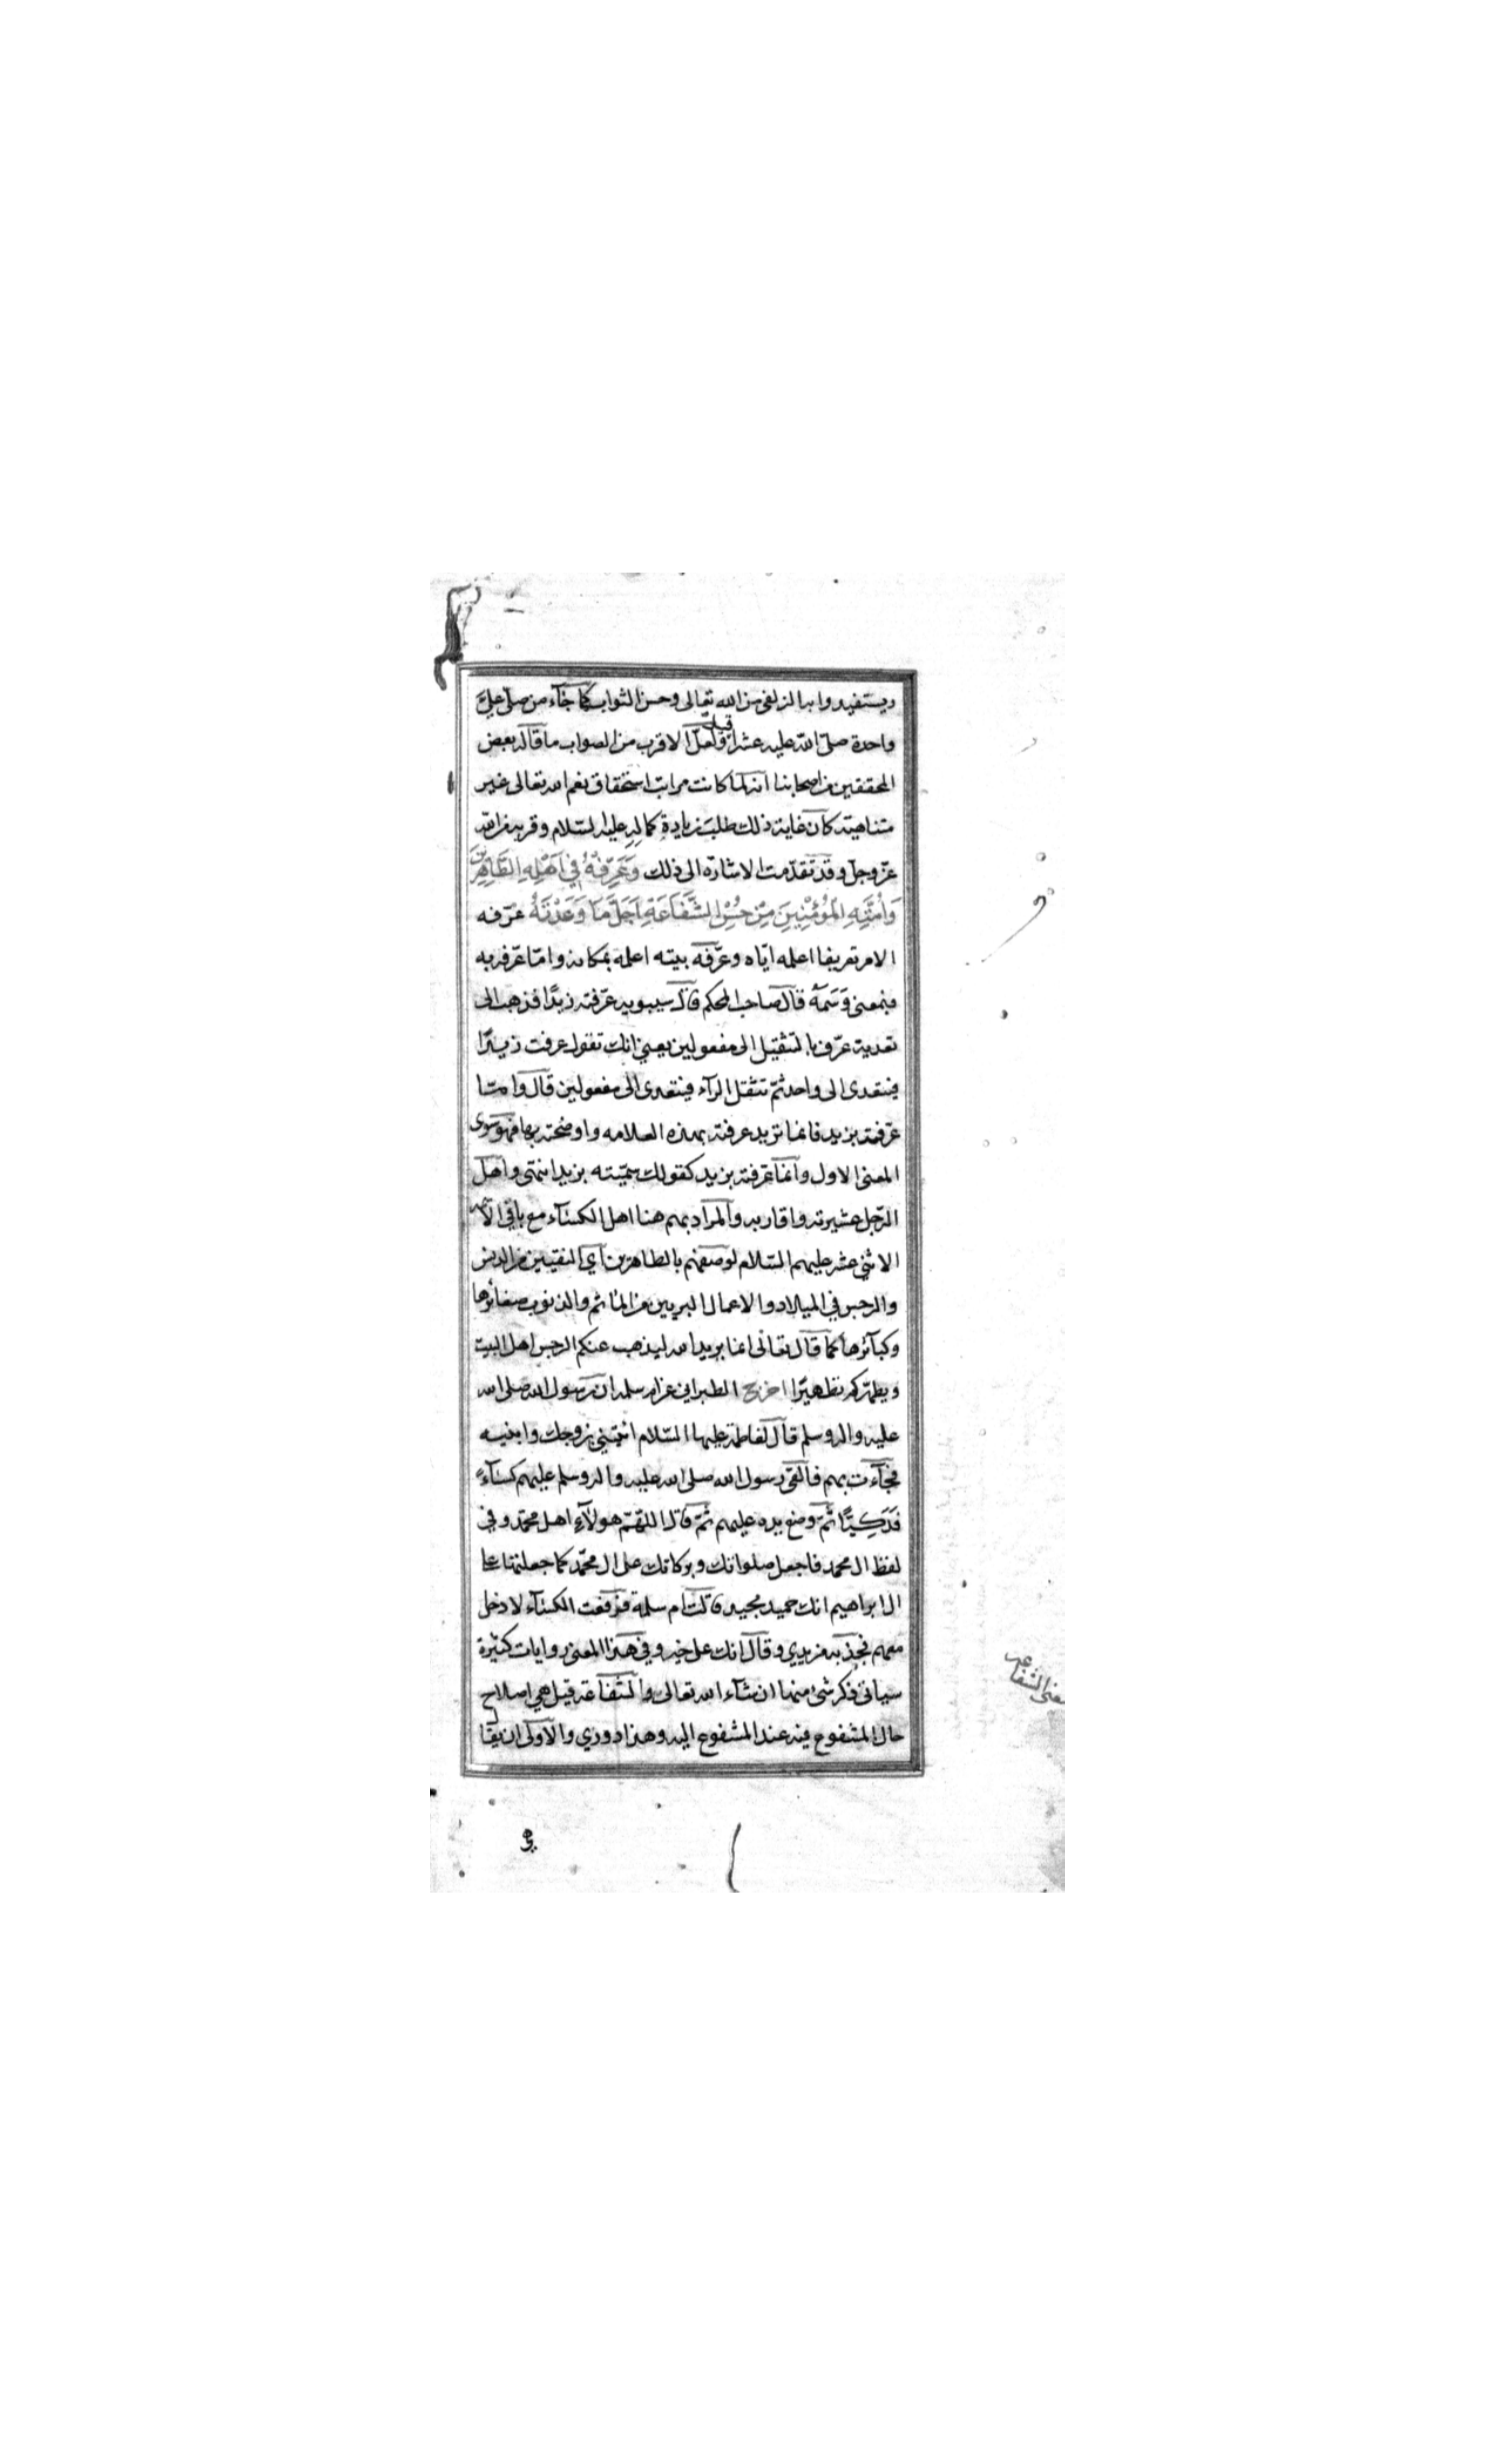 ويستفيدوا به الزلفى من الله تعالى وحسن الثواب كما جآء من صلى علىّ
واحدة صلى الله عليه عشرا قيل ولعل الاقرب من الصواب ما قاله بعض
المحققين من اصحابنا انه لما كانت مراتب استحقاق نعم الله تعالى غير
متناهية كان غاية ذلك طلب زيادة كماله عليه السلام وقربه من الله
عز وجل وقد تقدمت الاشارة الى ذلك وَعَرِّفْهُ فِي اَهْلِهِ الطَّاهِرِينَ
وَاُمَّتِهِ الْمُؤْمِنِينَ مِنْ حُسْنِ الشَّفَاعَةِ اَجَلَّ مَا وَعَدْتَهُ عرّفه
الامر تعريفا اعلمه ايّاه وعرّفه بيته اعلمه بمكانه وامّا عرّفه به
فبمعنى وَسَمَهُ قال صاحب المحكم قال سيبويه عرّفته زيدًا فذهب الى
تعدية عرّف بالتثقيل الى مفعولين يعني انك تقول عرفت زيدًا
فيتعدى الى واحد ثمّ تثقل الرآء فيتعدى الى مفعولين قال وامّا
عرّفته بزيد فانما تريد عرفته بهذه العلامه واوضحته بها فهو سوى
المعنى الاول وانما عرفته بزيد كقولك سمّيته بزيد انتهى واهل
الرّجل عشيرته واقاربه والمراد بهم هنا اهل الكسآء مع باقي الأئمه
الاثني عشر عليهم السّلام لوصفهم بالطاهرين اي النقيين من الدنس
والرجس في الميلاد والاعمال البريين من المآثم والذنوب صغائرها
وكبآئرها كما قال تعالى انما يريد الله ليذهب عنكم الرجس اهل البيت
ويطهّركم تطهيرًا اخرج الطبراني عن ام سلمه ان رسول الله صلى الله
عليه واله وسلم قال لفاطمة عليها السّلام ائتيني بزوجك وابنيه
فجآءت بهم فالقى رسول الله صلى الله عليه واله وسلم عليهم كسآءً
فَدَكِيًّا ثمّ وضع يده عليهم ثمّ قال اللّهمّ هولآءِ اهل محمّد وفي
لفظ ال محمد فاجعل صلواتك وبركاتك على ال محمّد كما جعلتها على
ال ابراهيم انك حميد مجيد قالت ام سلمة فرفعت الكسآء لادخل
معهم فجذبه من يدي وقال انك على خير وفي هذا المعنى روايات كثيرة
سياتي ذكر شئ منها ان شآء الله تعالى والشّفاعة قيل هي اصلاح
حال المشفوع فيه عند المشفوع اليه وهذا دوري والاولى ان يقال
معنى الشفاعه